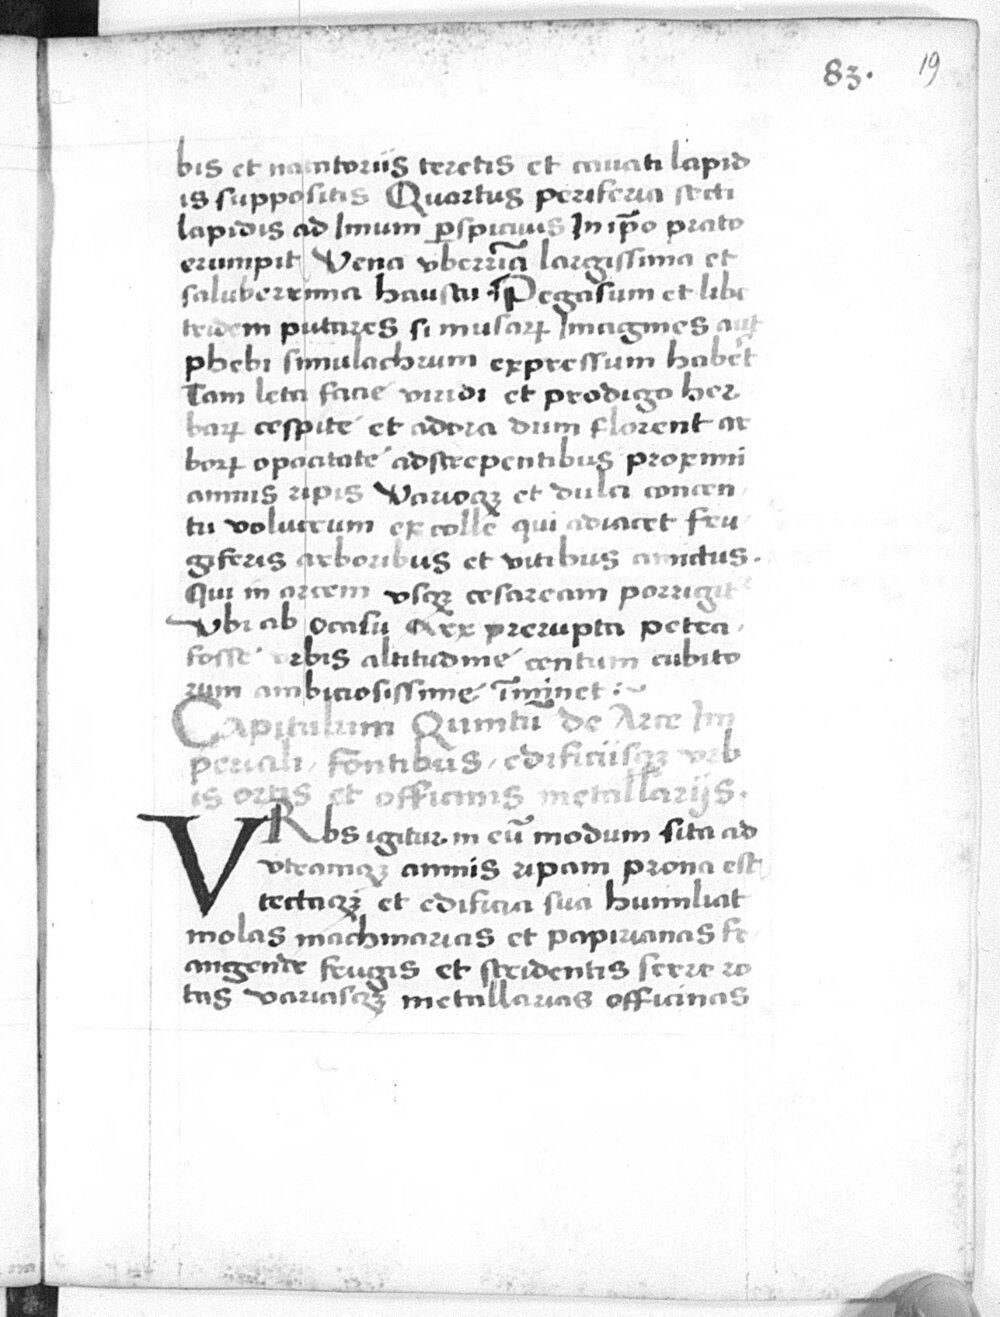 83. 19
bis et natatoriis teretis et cauati lapid
is suppositis Quartus periferia secti
lapidis ad Imum ꝑspicuus In ip̄o prato
erumpit Vena vberri͞a largissima et
saluberrima haustu Pegasum et libe
tridem putares si musaꝝ Imagines aut
phebi simulachrum expressum haber̄t
Tam leta facie viridi et prodigo her
baꝝ cespite et adora dum florent ar
boꝝ opacitate adstrepentibus proximi
amnis ripis Varioqꝫ et dulci concen
tu volucrum ex colle qui adiacet fru
giferis arboribus et vitibus amictus.
Qui in arcem vsqꝫ cesaream porrigit
Vbi ab ocasu Arx prerupta petra
fosse orbis altitudine centum cubito
rum ambiciosissime Īminet :~
Capitulum Quintū de Arce Im
periali, fontibus, edificiisqꝫ vrb
is ortis et officinis metallarijs.
VRbs igitur in eū modum sita ad
vtramqꝫ amnis ripam prona est
tectaqꝫ et edificia sua humiliat
molas machinarias et papirianas fr
angende frugis et stridentis serre ro
tas variasqꝫ metallarias officinas